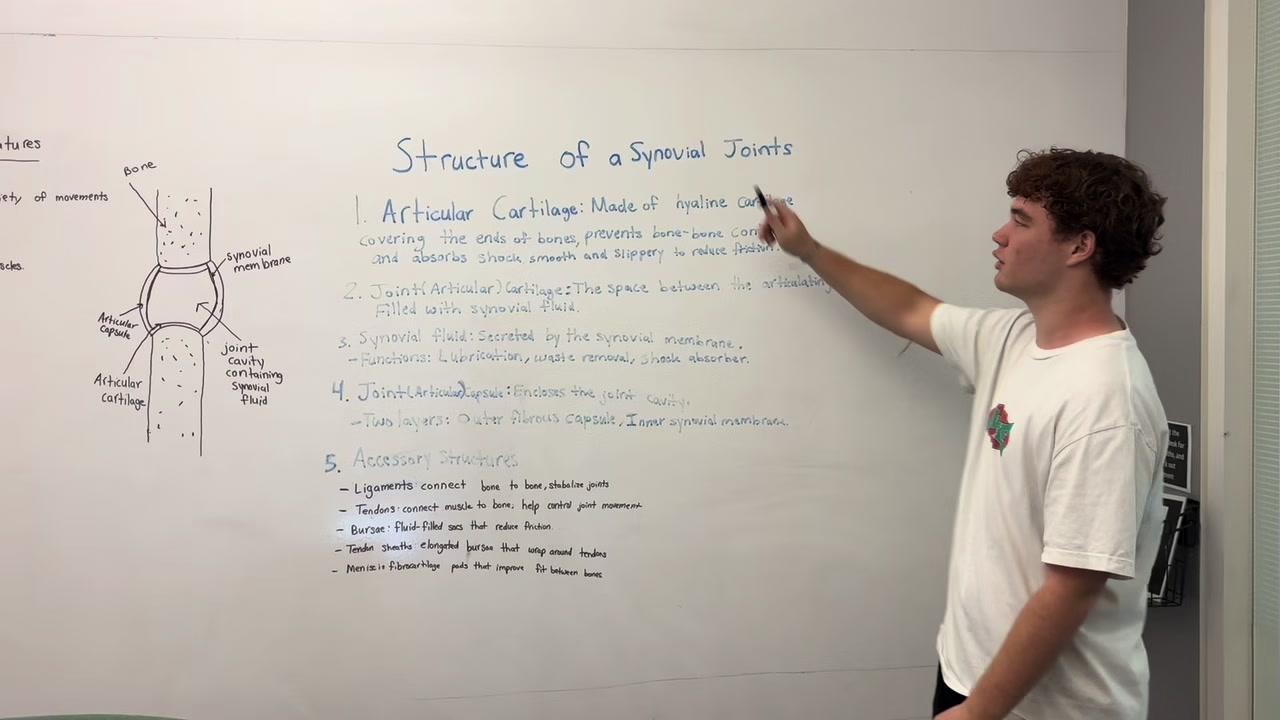 atures
iety of movements
scles.
Bone
synovial
membrane
Articular
capsule
Articular
cartilage
joint
cavity
containing
synovial
fluid
Structure of a Synovial Joints
1. Articular Cartilage: Made of hyaline cartilage
covering the ends of bones, prevents bone-bone con
and absorbs shock, smooth and slippery to reduce friction.
2. Joint (Articular) Cartilage: The space between the articulating
Filled with synovial fluid.
3. Synovial fluid: Secreted by the synovial membrane.
- Functions: Lubrication, waste removal, shock absorber.
4. Joint (Articular) Capsule: Encloses the joint cavity.
- Two layers: Outer fibrous capsule, Inner synovial membrane.
5. Accessory Structures
- Ligaments connect bone to bone, stabalize joints
- Tendons: connect muscle to bone, help control joint movement
- Bursae: fluid-filled sacs that reduce friction.
- Tendon sheaths elongated bursae that wrap around tendons
- Menisci: fibrocartilage pads that improve fit between bones